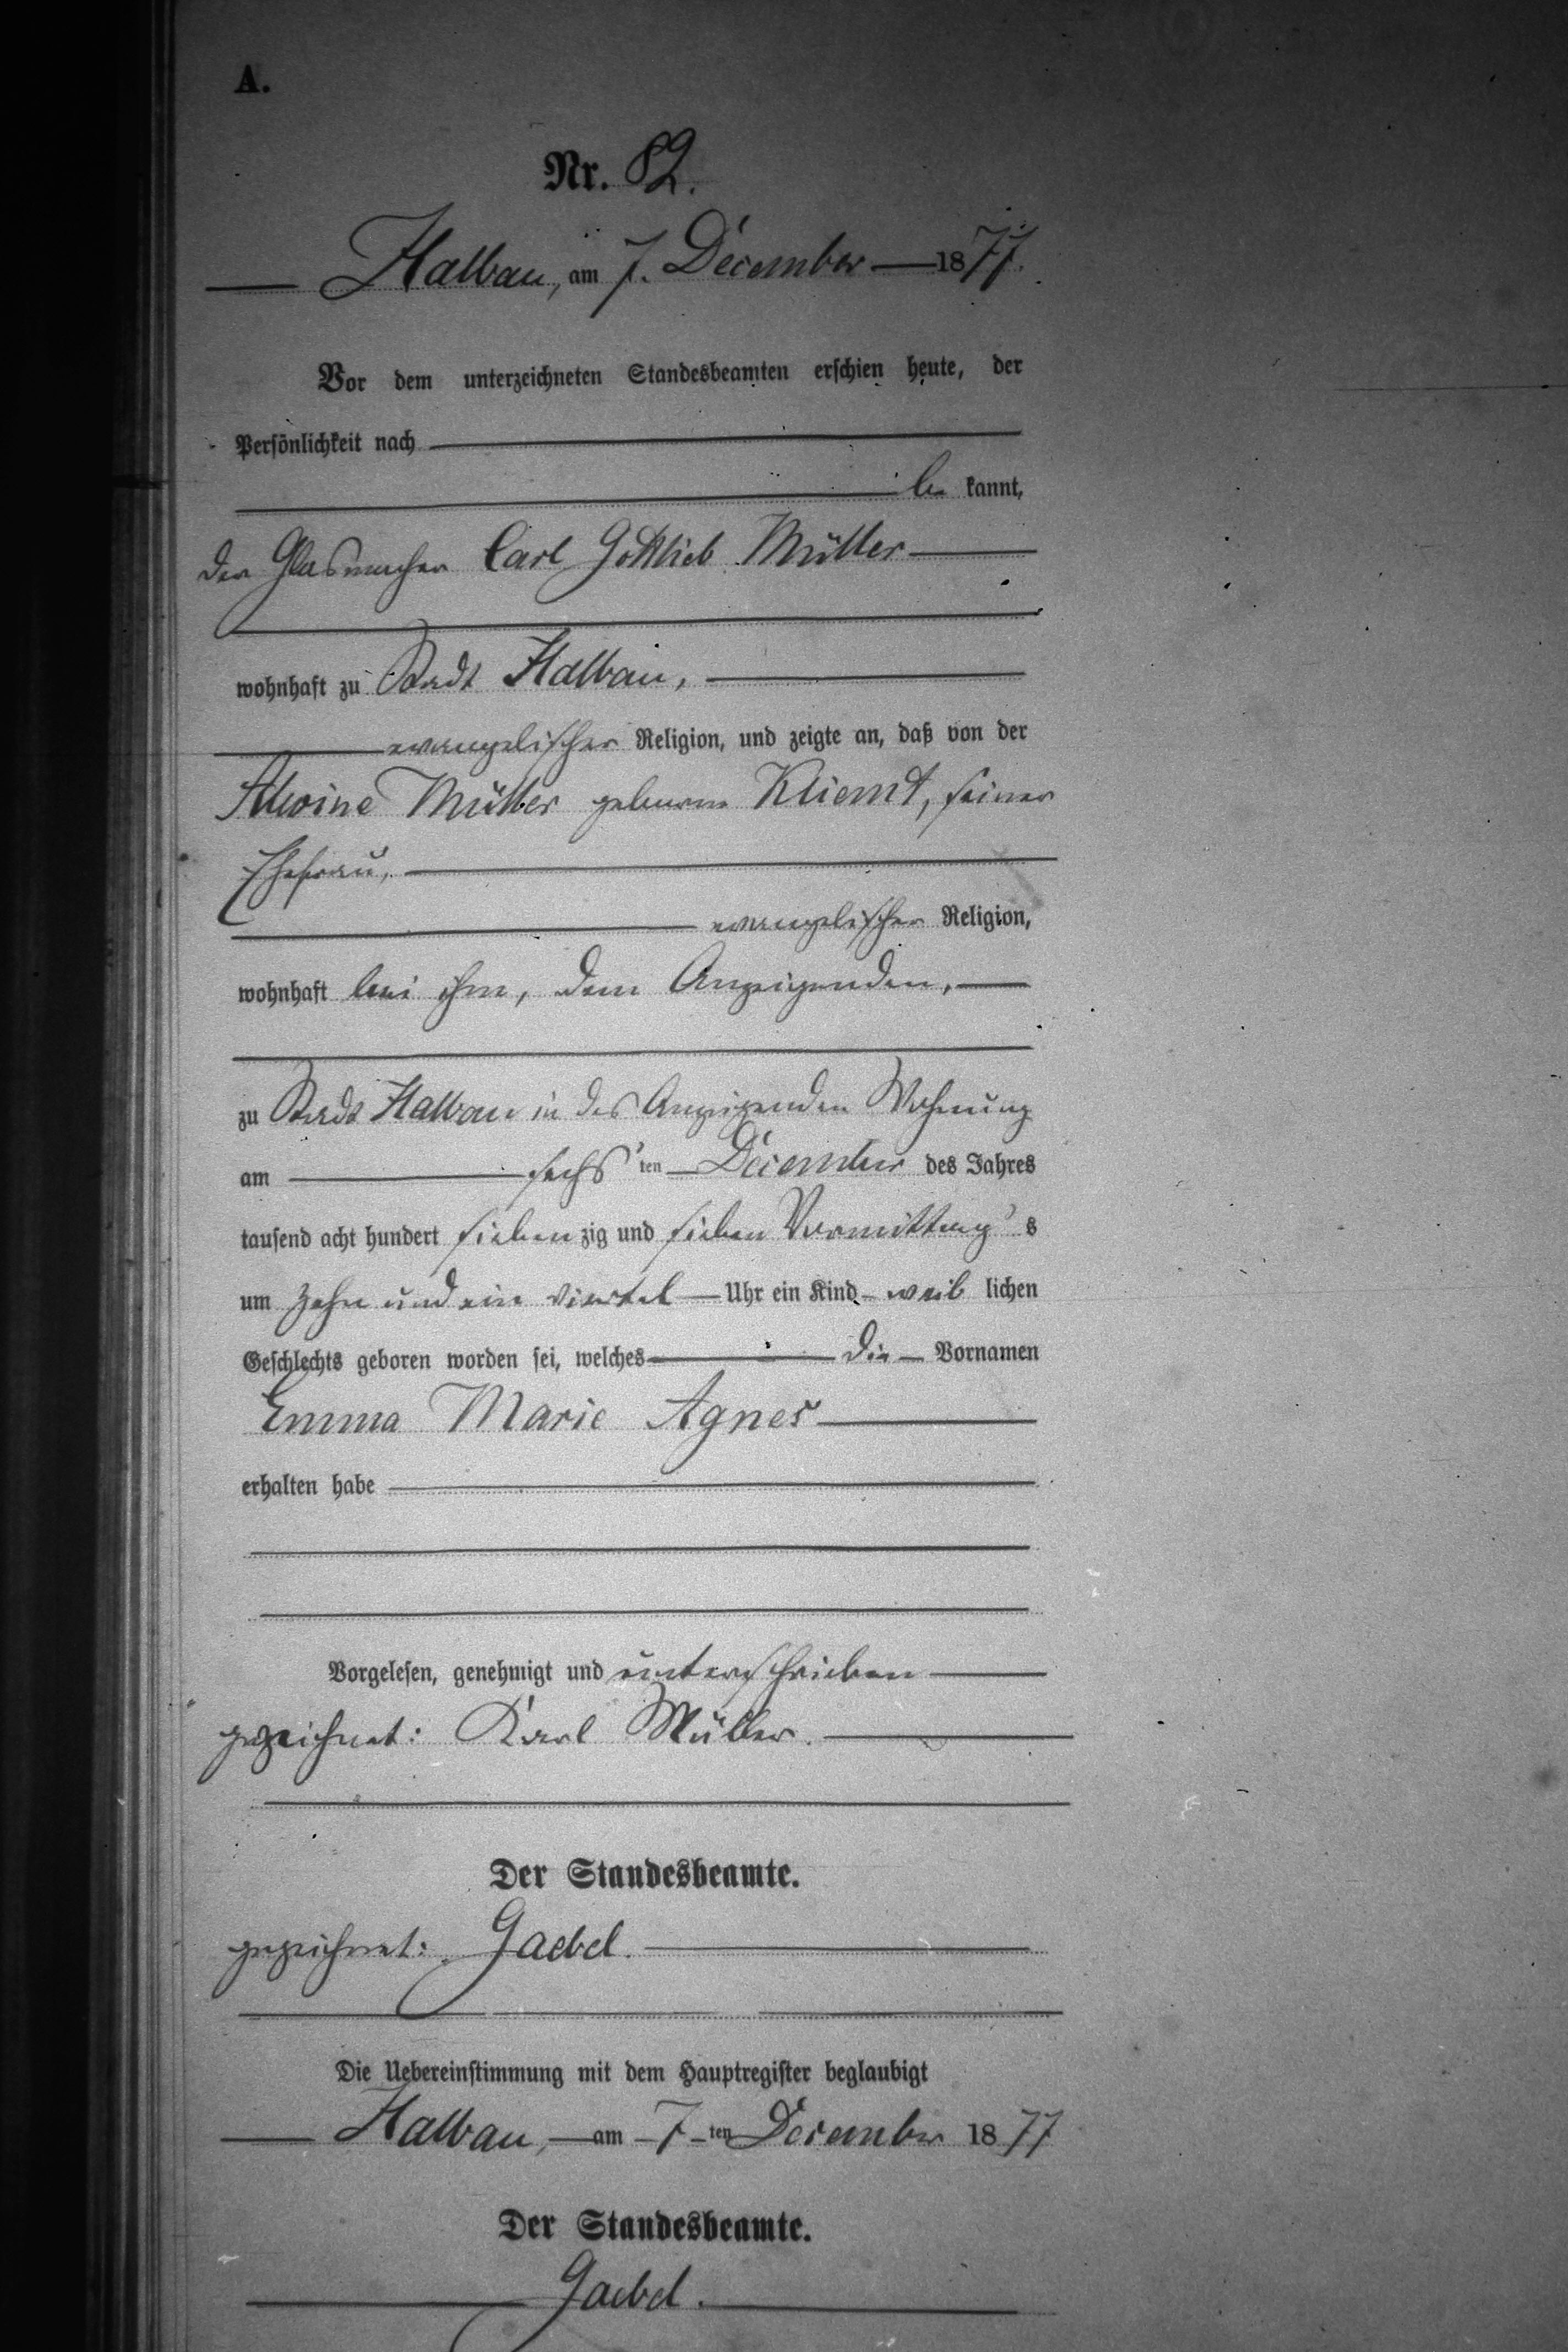 A.
Nr. 82.
Halbau, am 7. December 1877.
Vor dem unterzeichneten Standesbeamten erschien heute, der
Persönlichkeit nach
be kannt,
der Glasmacher Carl Gottlieb Müller
wohnhaft zu Stadt Halbau,
evangelischer Religion, und zeigte an, daß von der
Alwine Müller geborne Kliemt, seiner
Ehefrau,
evangelischer Religion,
wohnhaft bei ihm, dem Anzeigenden,
zu Stadt Halbau in des Anzeigenden Wohnung
am sechs'ten December des Jahres
tausend acht hundert siebenzig und sieben Vormittag's
um zehn und ein viertel Uhr ein Kind weib lichen
Geschlechts geboren worden sei, welches die Vornamen
Emma Marie Agnes
erhalten habe
Vorgelesen, genehmigt und unterschrieben
gezeichnet: Karl Müller.
Der Standesbeamte.
gezeichnet: Gaebel.
Die Uebereinstimmung mit dem Hauptregister beglaubigt
Halbau, am 7ten December 1877
Der Standesbeamte.
Gaebel.